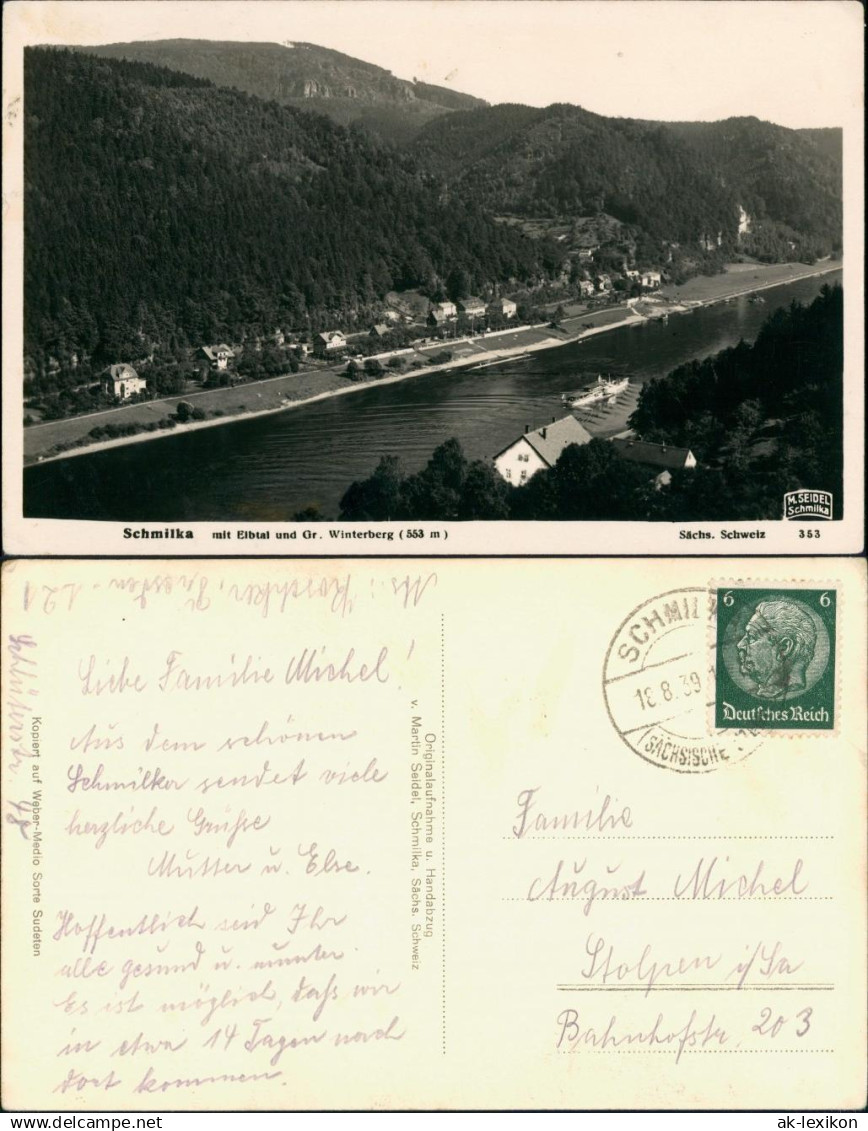 M. SEIDEL
Schmilka
Schmilka mit Elbtal und Gr. Winterberg (553 m) Sächs. Schweiz 353
Dresden - A 21
Schlüterstr. 48
Liebe Familie Michel!
Aus dem schönen
Schmilka sendet viele
herzliche Grüße
Mutter u. Else.
Hoffentlich seid Ihr
alle gesund u. munter.
Es ist möglich, daß wir
in etwa 14 Tagen nach
dort kommen.
Kopiert auf Weber-Medio Sorte Sudeten
Originalaufnahme u. Handabzug
v. Martin Seidel, Schmilka, Sächs. Schweiz
SCHMILK
18.8.39.1
(SÄCHSISCHE
6 6
Deutsches Reich
Familie
August Michel
Stolpen i/Sa
Bahnhofstr. 203
www.delcampe.net
ak-lexikon